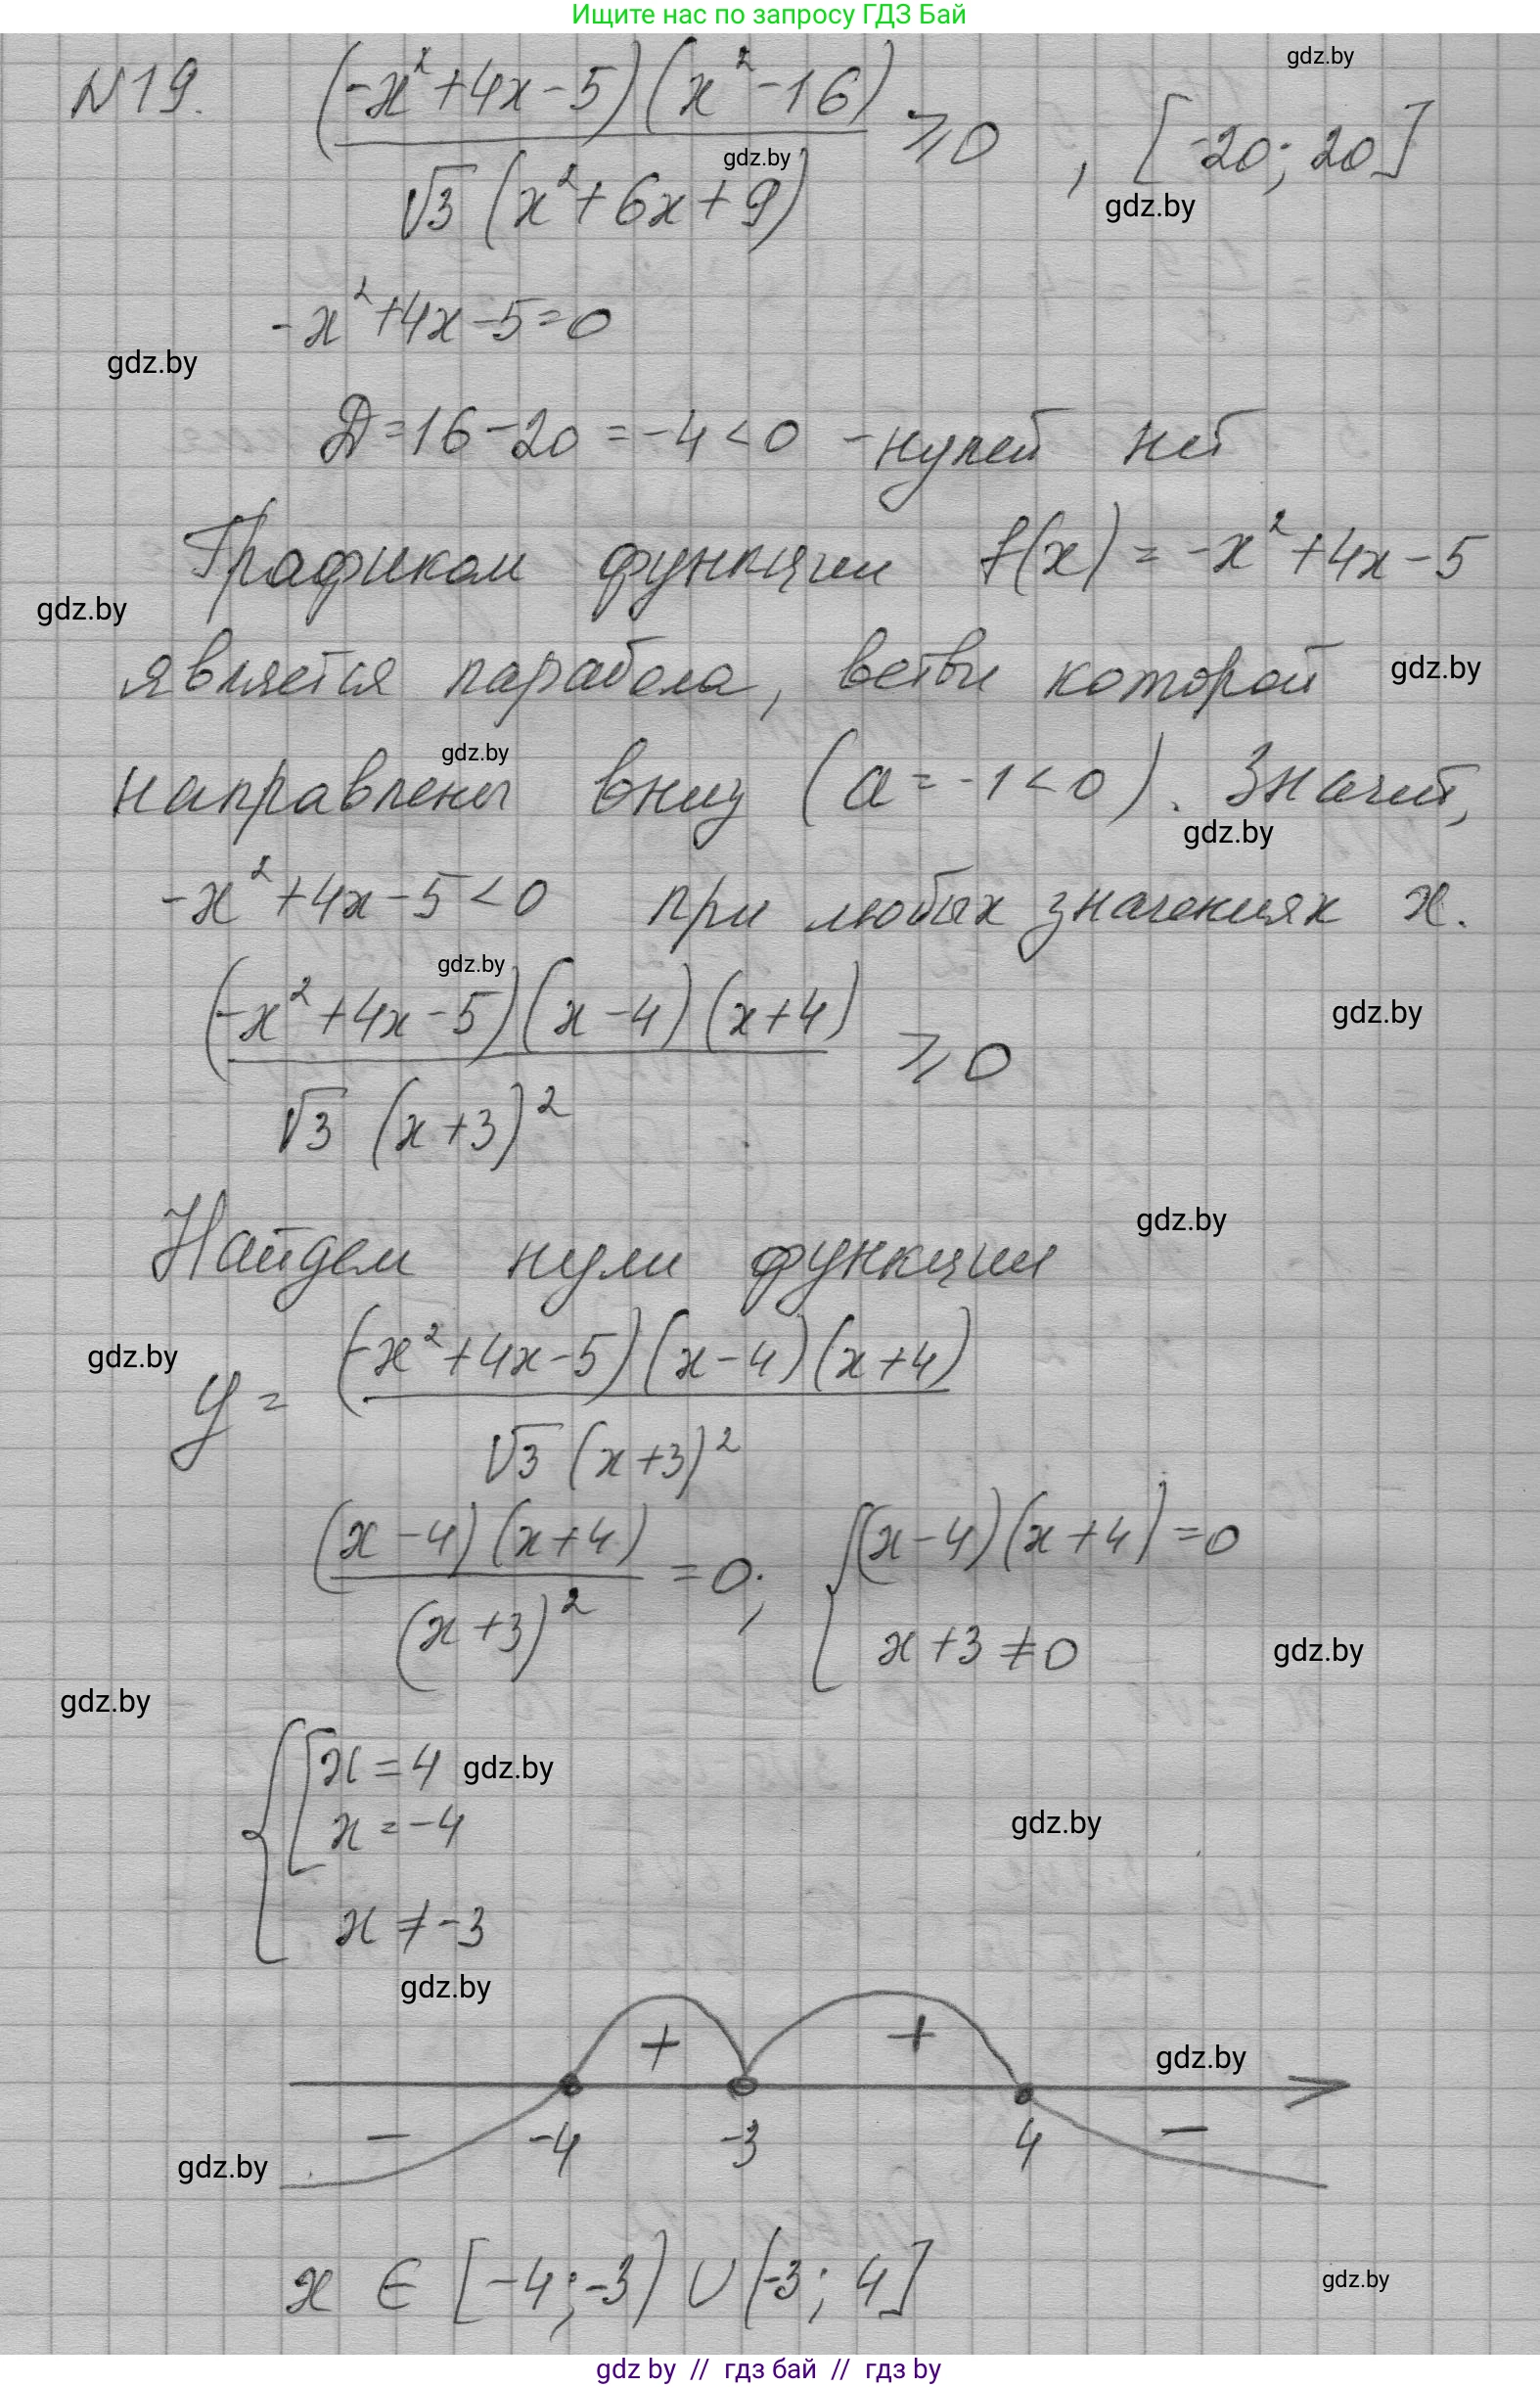 Ищите нас по запросу ГДЗ Бай
gdz.by
№19. (-x²+4x-5)(x²-16) / √3 (x²+6x+9) ⩾ 0 , [-20; 20]
gdz.by
gdz.by
-x²+4x-5=0
gdz.by
Д=16-20=-4<0 - нулей нет
Графиком функции f(x)=-x²+4x-5
gdz.by
является парабола, ветви которой
gdz.by
gdz.by
направлены вниз (a=-1<0). Значит,
gdz.by
-x²+4x-5<0 при любых значениях x.
gdz.by
(-x²+4x-5)(x-4)(x+4) / √3 (x+3)² ⩾ 0
gdz.by
Найдем нули функции
gdz.by
gdz.by
y = (-x²+4x-5)(x-4)(x+4) / √3 (x+3)²
(x-4)(x+4) / (x+3)² = 0; { (x-4)(x+4)=0
x+3≠0
gdz.by
gdz.by
{ [ x=4
gdz.by
x=-4
gdz.by
x≠-3
gdz.by
+ +
gdz.by
- -4 -3 4 -
gdz.by
x ∈ [-4;-3) ∪ (-3; 4]
gdz.by
gdz by // гдз бай // гдз by